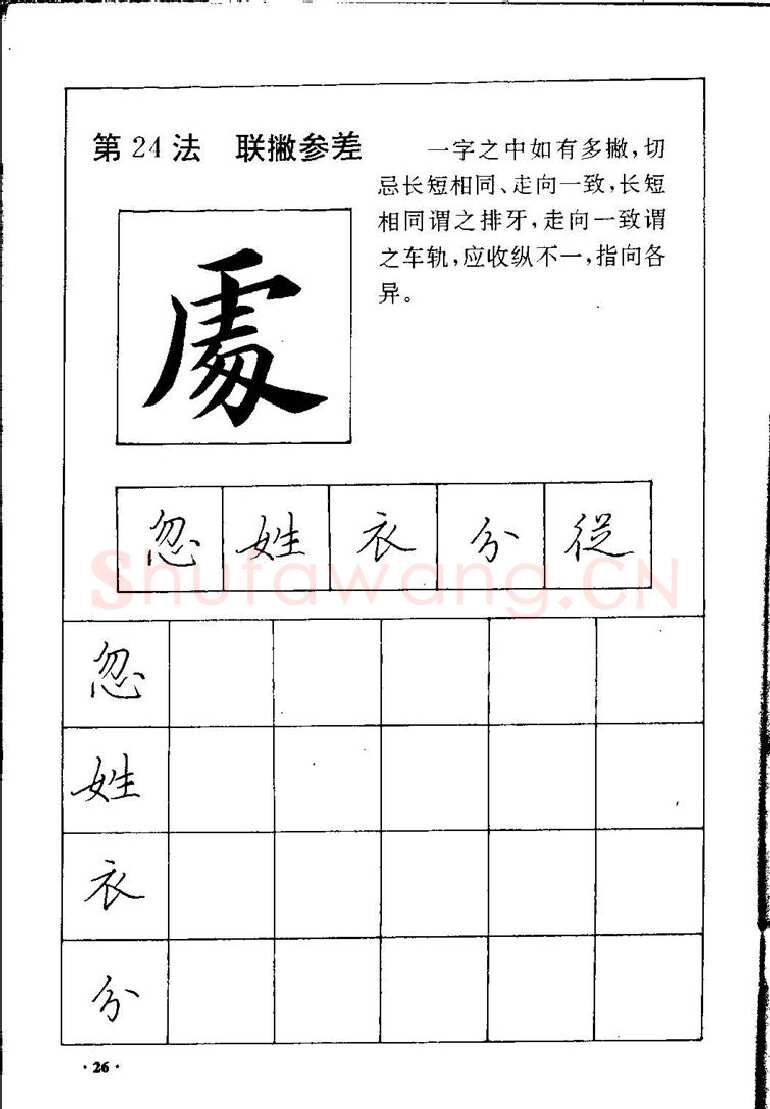 第24法 联撇参差
一字之中如有多撇,切
忌长短相同、走向一致,长短
相同谓之排牙,走向一致谓
之车轨,应收纵不一,指向各
异。
忽 姓 衣 分 從
Shufawang.CN
忽
姓
衣
分
·26·